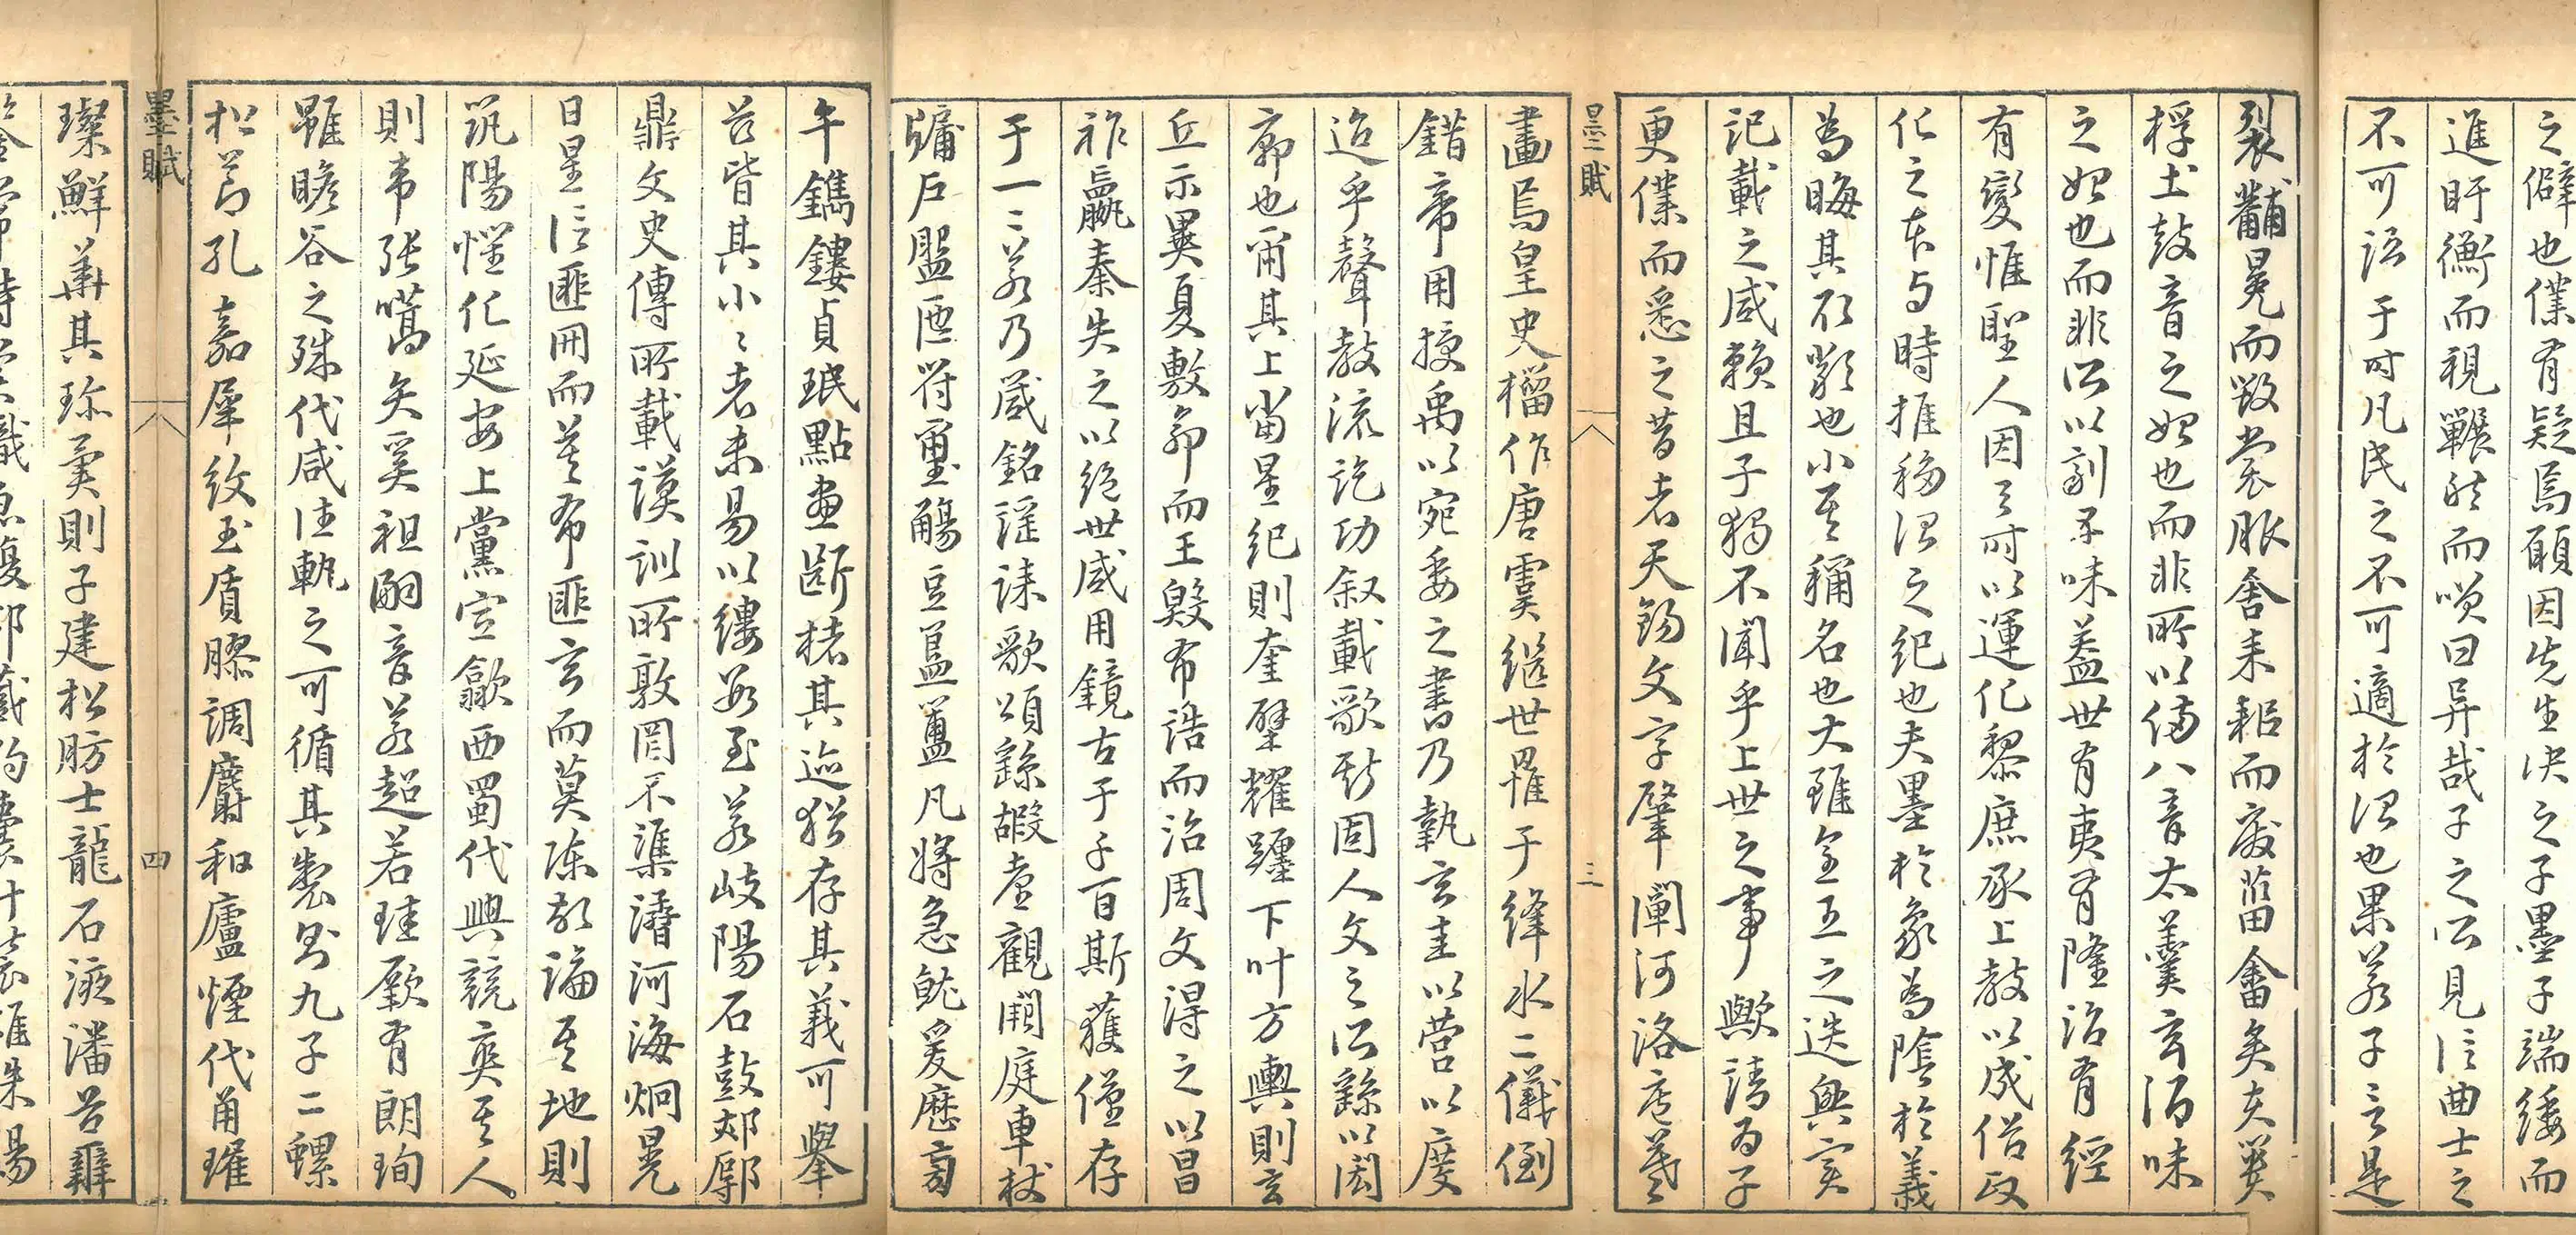 之僻也僕有疑焉願因先生決之子墨子端綏而
進盱衡而視囅然而嘆曰异哉子之所見信曲士之
不可語于時凡民之不可適於治也果若子言是
裂黼冕而毀裳服舍耒耜而廢菑畬矣夫蕢
桴土鼓音之始也而非所以備八音太羹玄酒味
之始也而非所以劑五味蓋世有夷有隆治有經
有變惟聖人因之時以運化黎庶承上教以成俗政
化之本与時推移治之紀也夫墨於象為陰於義
為晦其形黝也小其稱名也大雖全五之迭興實
記載之咸賴且子獨不聞乎上世之事歟請为子
更僕而悉之昔者天錫文字肇闡河洛庖羲
墨賦
三
畫焉皇史榴作唐虞繼世罹于絳水二儀倒
錯帝用授禹以宛委之書乃執玄圭以營以度
迨乎聲教流訖功叙載歌斯固人文之所繇以閎
廓也爾其上當星紀則奎壁耀躔下叶方輿則玄
丘示異夏敷命而王殷布誥而治周文得之以昌
祚嬴秦失之以絕世咸用鏡古于子百斯獲僅存
于一二若乃箴銘謡誄歌頌繇嘏臺觀閒庭車杖
牖戶盤匜符璽觴豆簋簠凡將急就爰歷
午鐫鏤貞珉點畫斷楮其迹猶存其義可舉
茲皆其小小者未易以縷數至若岐陽石鼓郟鄏
鼎文史傳所載謨訓所敦罔不渠濬河海炯晃
日星信匪冊而莫布匪玄而莫陳敢論其地則
筑陽惺化延安上黨宣歙西蜀代興競爽其人
則韋張嚆矢奚祖嗣音若超若珪厥有朗珣
雖瞻谷之殊代咸法軌之可循其製則九子二螺
松節孔嘉犀紋玉盾膠調麝和廬煙代甬璀
墨賦
四
璨鮮華其珍異則子建松肪士龍石液潘谷